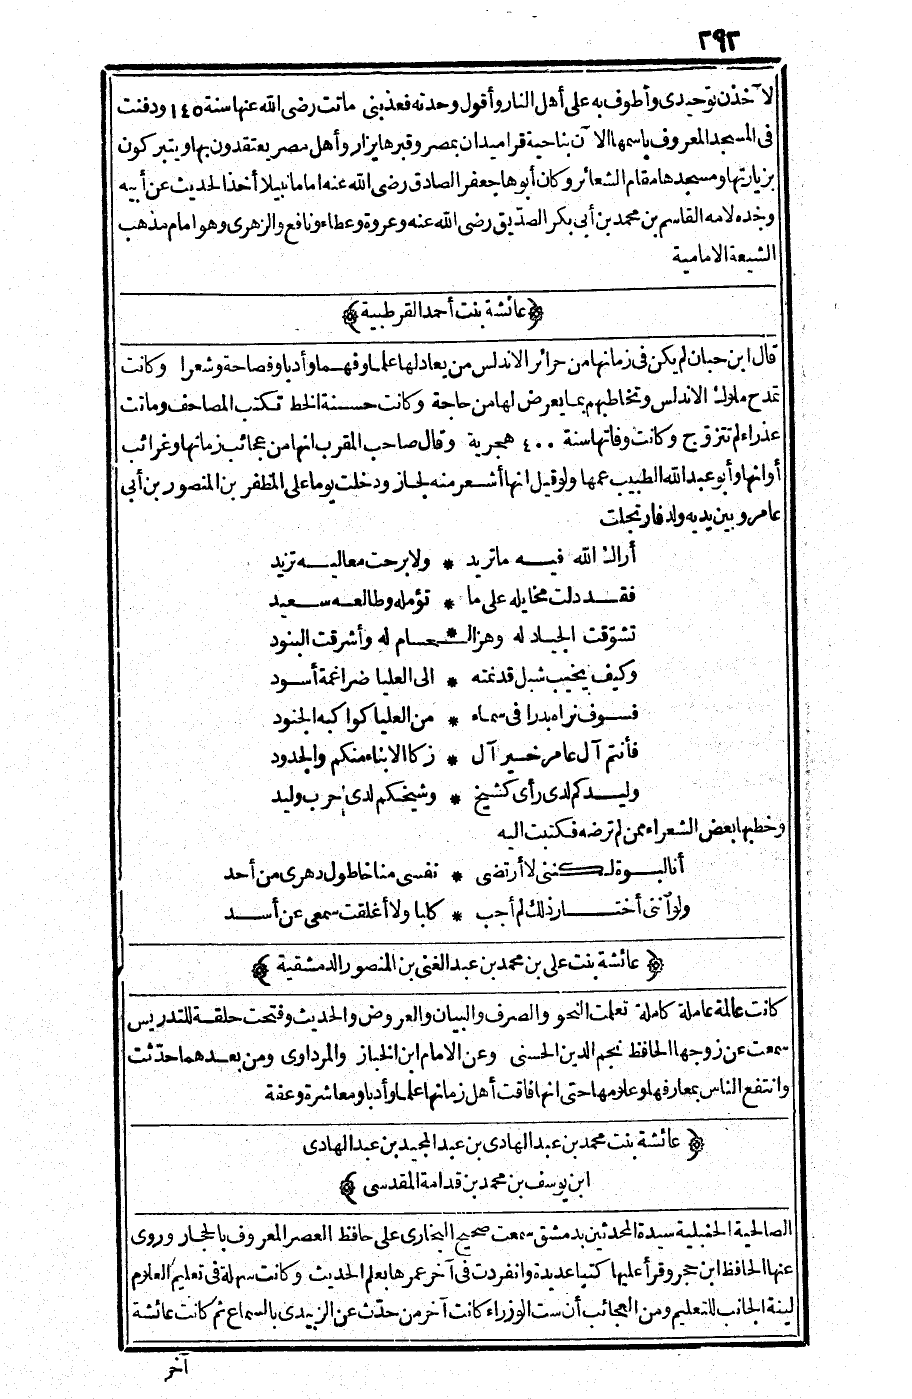 ٢٩٣
لاآخذن توحيدى وأطوف به على أهل النار وأقول وحدته فعذبنى ماتت رضى الله عنها سنة ١٤٥ ودفنت
فى المسجد المعروف باسمها الآن بناحية قراميدان بمصر وقبرها يزار وأهل مصر يعتقدون بها ويتبركون
بزيارتها ومسجدها مقام الشعائر وكان أبوها جعفر الصادق رضى الله عنه اماما نبيلا أخذ الحديث عن أبيه
وجده لامه القاسم بن محمد بن أبى بكر الصديق رضى الله عنه وعروة وعطاء ونافع والزهرى وهو امام مذهب
الشيعة الامامية
﴿عائشة بنت أحمد القرطبية﴾
قال ابن حبان لم يكن فى زمانها من حرائر الاندلس من يعادلها علما وفهما وأدبا وفصاحة وشعرا وكانت
تمدح ملوك الاندلس وتخاطبهم بما يعرض لها من حاجة وكانت حسنة الخط تكتب المصاحف وماتت
عذراء لم تتزوج وكانت وفاتها سنة ٤٠٠ هجرية وقال صاحب المقرب انها من عجائب زمانها وغرائب
أوانها وأبو عبد الله الطبيب عمها ولو قيل انها أشعر منه لجاز ودخلت يوما على المظفر بن المنصور بن أبى
عامر وبين يديه ولد فارتجلت
أراك الله فيه ما تريد * ولا برحت معاليه تزيد
فقد دلت مخايله على ما * تؤمله وطالعه سعيد
تشوّقت الجياد له وهز الـ * ـحسام له وأشرقت البنود
وكيف يخيب شبل قد نمته * الى العليا ضراغمة أسود
فسوف تراه بدرا فى سماء * من العليا كواكبه الجنود
فأنتم آل عامر خير آل * زكا الابناء منكم والجدود
وليدكم لدى رأى كشيخ * وشيخكم لدى حرب وليد
وخطبها بعض الشعراء ممن لم ترضه فكتبت اليه
أنا لبوة لكننى لا أرتضى * نفسى مناخا طول دهرى من أحد
ولو آننى أختار ذلك لم أجب * كلبا ولا أغلقت سمعى عن أسد
﴿عائشة بنت على بن محمد بن عبد الغنى بن المنصور الدمشقية﴾
كانت عالمة عاملة كاملة تعلمت النحو والصرف والبيان والعروض والحديث وفتحت حلقة للتدريس
سمعت عن زوجها الحافظ نجم الدين الحسنى وعن الامام ابن الخباز والمرداوى ومن بعدهما حدّثت
وانتفع الناس بمعارفها وعلامها حتى انها فاقت أهل زمانها علما وأدبا ومعاشرة وعفة
﴿عائشة بنت محمد بن عبد الهادى بن عبد المجيد بن عبد الهادى
ابن يوسف بن محمد بن قدامة المقدسى﴾
الصالحية الحنبلية سيدة المحدثين بدمشق سمعت صحيح البخارى على حافظ العصر المعروف بالحجار وروى
عنها الحافظ ابن حجر وقرأ عليها كتبا عديدة وانفردت فى آخر عمرها بعلم الحديث وكانت سهلة فى تعليم العلام
لينة الجانب للتعليم ومن العجائب أن ست الوزراء كانت آخر من حدّث عن الزبيدى بالسماع ثم كانت عائشة
آخر